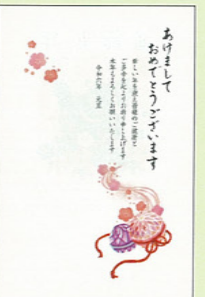 あけまして
おめでとうございます
新しい年を迎え皆様のご健康と
ご多幸を心よりお祈り申し上げます
本年もよろしくお願いいたします
令和六年 元旦